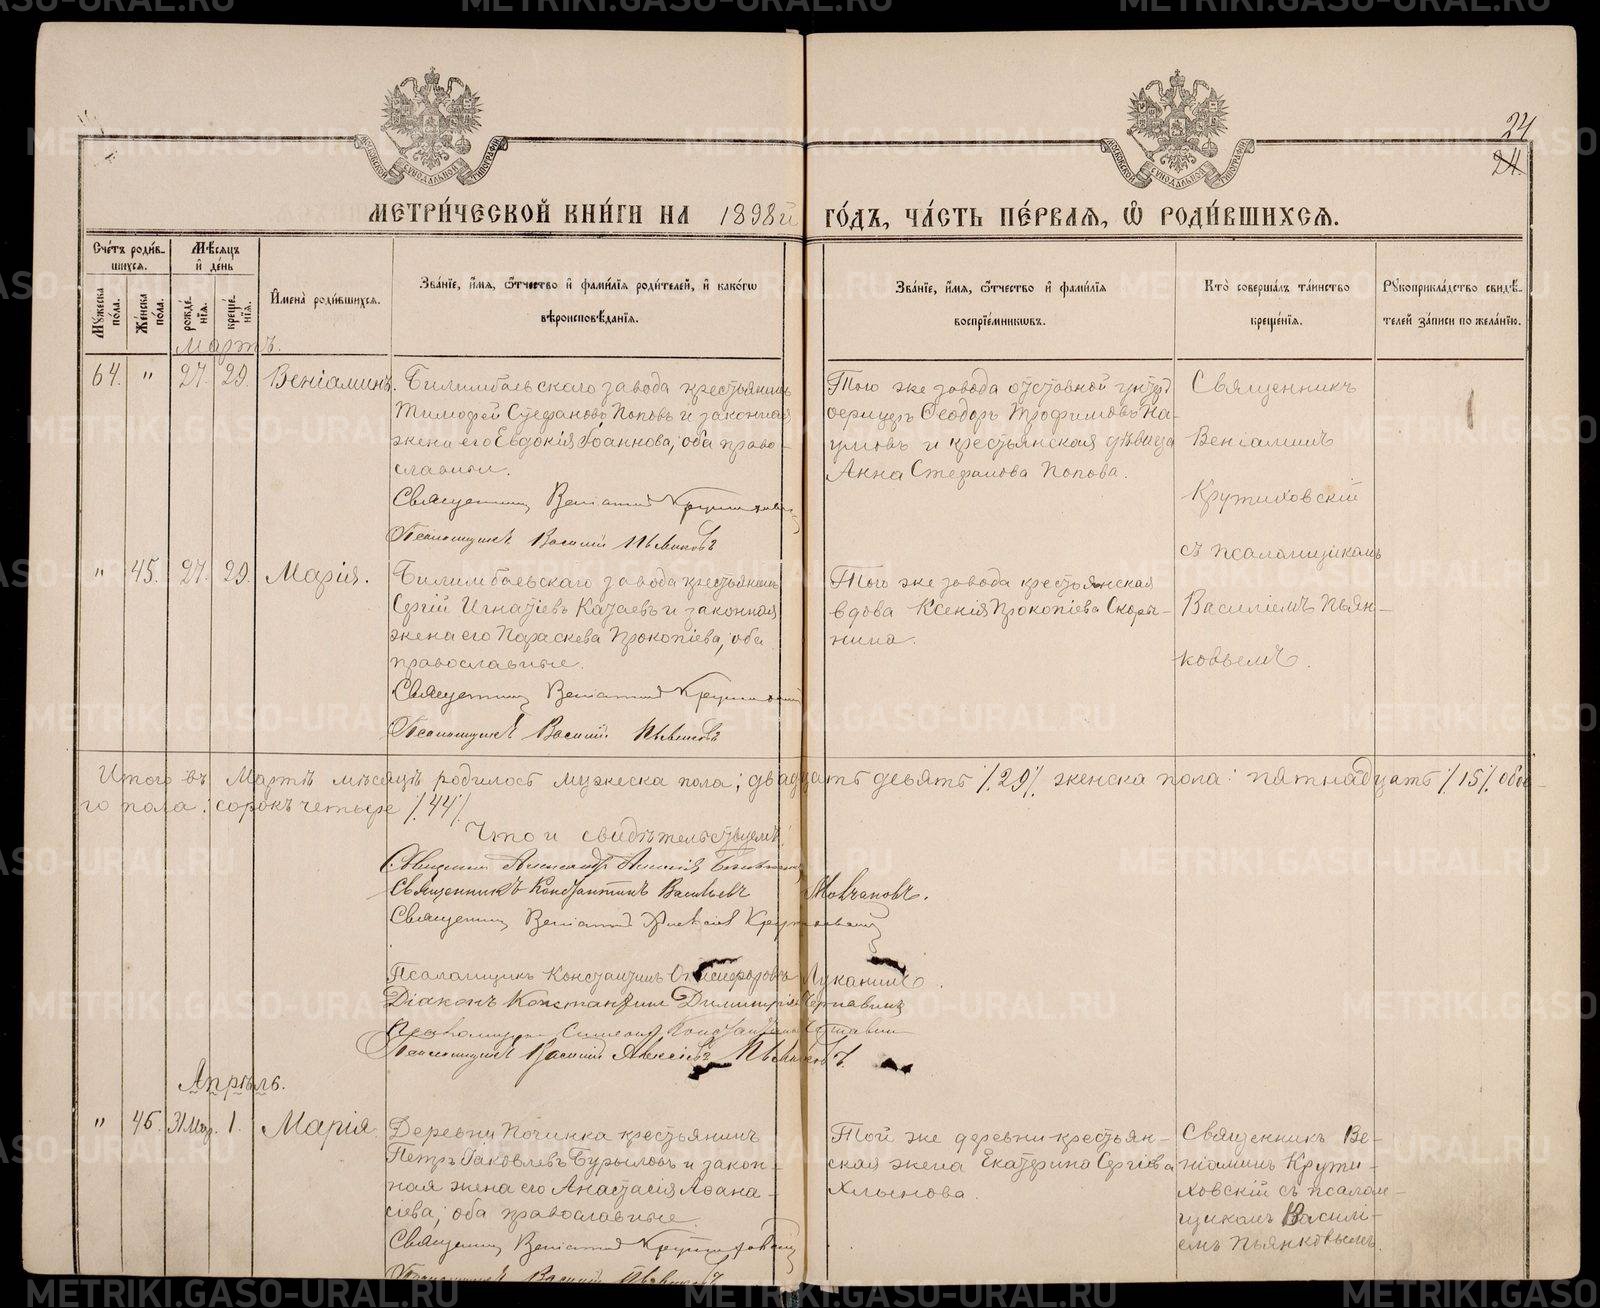 24
24.
МЕТРИ́ЧЕСКОЙ КНИ́ГИ НА 1898й ГО́ДЪ, ЧА́СТЬ ПЕ́РВАЯ, Ѽ РОДИ́ВШИХСЯ.
Сче́тъ роди́в-
шихся.
Мꙋжеска
пола.
Же́нска
по́ла.
Мѣ́сяцъ
и҆ де́нь
рожде́-
нїѧ.
креще́-
нїѧ.
И҆мена̀ роди́вшихся.
Зва́нїе, и҆́мѧ, ѻ҆́тчество и҆ фами́лїѧ роди́телей, и҆ како́гѡ
вѣроисповѣ́данїѧ.
Зва́нїе, и҆́мѧ, ѻ҆́тчество и҆ фами́лїѧ
воспрїе́мникѡвъ.
Кто̀ соверша́лъ та́инство
креще́нїѧ.
Рꙋкоприкла́дство свидѣ́-
телей за́писи по жела́нїю.
Мартъ.
64. " 27. 29. Веніаминъ.
Билимбаевскаго завода крестьянинъ
Тимофей Стефановъ Поповъ и законная
жена его Евдокія Іоаннова, оба право-
славные.
Священникъ Веніаминъ Крутиховскій
Псаломщикъ Василій Пьянковъ
Того же завода отставной унтеръ
офицеръ Ѳеодоръ Трофимовъ На-
умовъ и крестьянская дѣвица
Анна Стефанова Попова.
Священникъ
Веніаминъ
Крутиховскій
съ псаломщикомъ
Василіемъ Пьян-
ковымъ.
" 45. 27. 29. Марія.
Билимбаевскаго завода крестьянинъ
Сергій Игнатіевъ Катаевъ и законная
жена его Параскева Прокопіева, оба
православные.
Священникъ Веніаминъ Крутиховскій
Псаломщикъ Василій Пьянковъ
Того же завода крестьянская
вдова Ксенія Прокопіева Скоры-
нина.
Итого въ Мартѣ мѣсяцѣ родилось мужеска пола: двадцать девять /.29/. женска пола: пятнадцать /.15/. обое-
го пола: сорокъ четыре /.44/.
Что и свидѣтельствуемъ:
Священникъ Александръ Алексіевъ
Священникъ Константинъ Васильевъ Молчановъ.
Священникъ Веніаминъ Алексіевъ Крутиховскій
Псаломщикъ Константинъ Онисифоровъ Луканинъ.
Діаконъ Константинъ Димитріевъ Чернавинъ
Псаломщикъ Симеонъ Константиновъ Чернавинъ
Псаломщикъ Василій Алексіевъ Пьянковъ.
Апрѣль.
" 46. 31 Мар. 1. Марія
Деревни Починка крестьянинъ
Петръ Іаковлевъ Бурыловъ и закон-
ная жена его Анастасія Аѳана-
сіева, оба православные.
Священникъ Веніаминъ Крутиховскій
Псаломщикъ Василій Пьянковъ
Той же деревни крестьян-
ская жена Екатерина Сергіева
Хлынова.
Священникъ Ве-
ніаминъ Крути-
ховскій съ псалом-
щикомъ Василі-
емъ Пьянковымъ.
METRIKI.GASO-URAL.RU